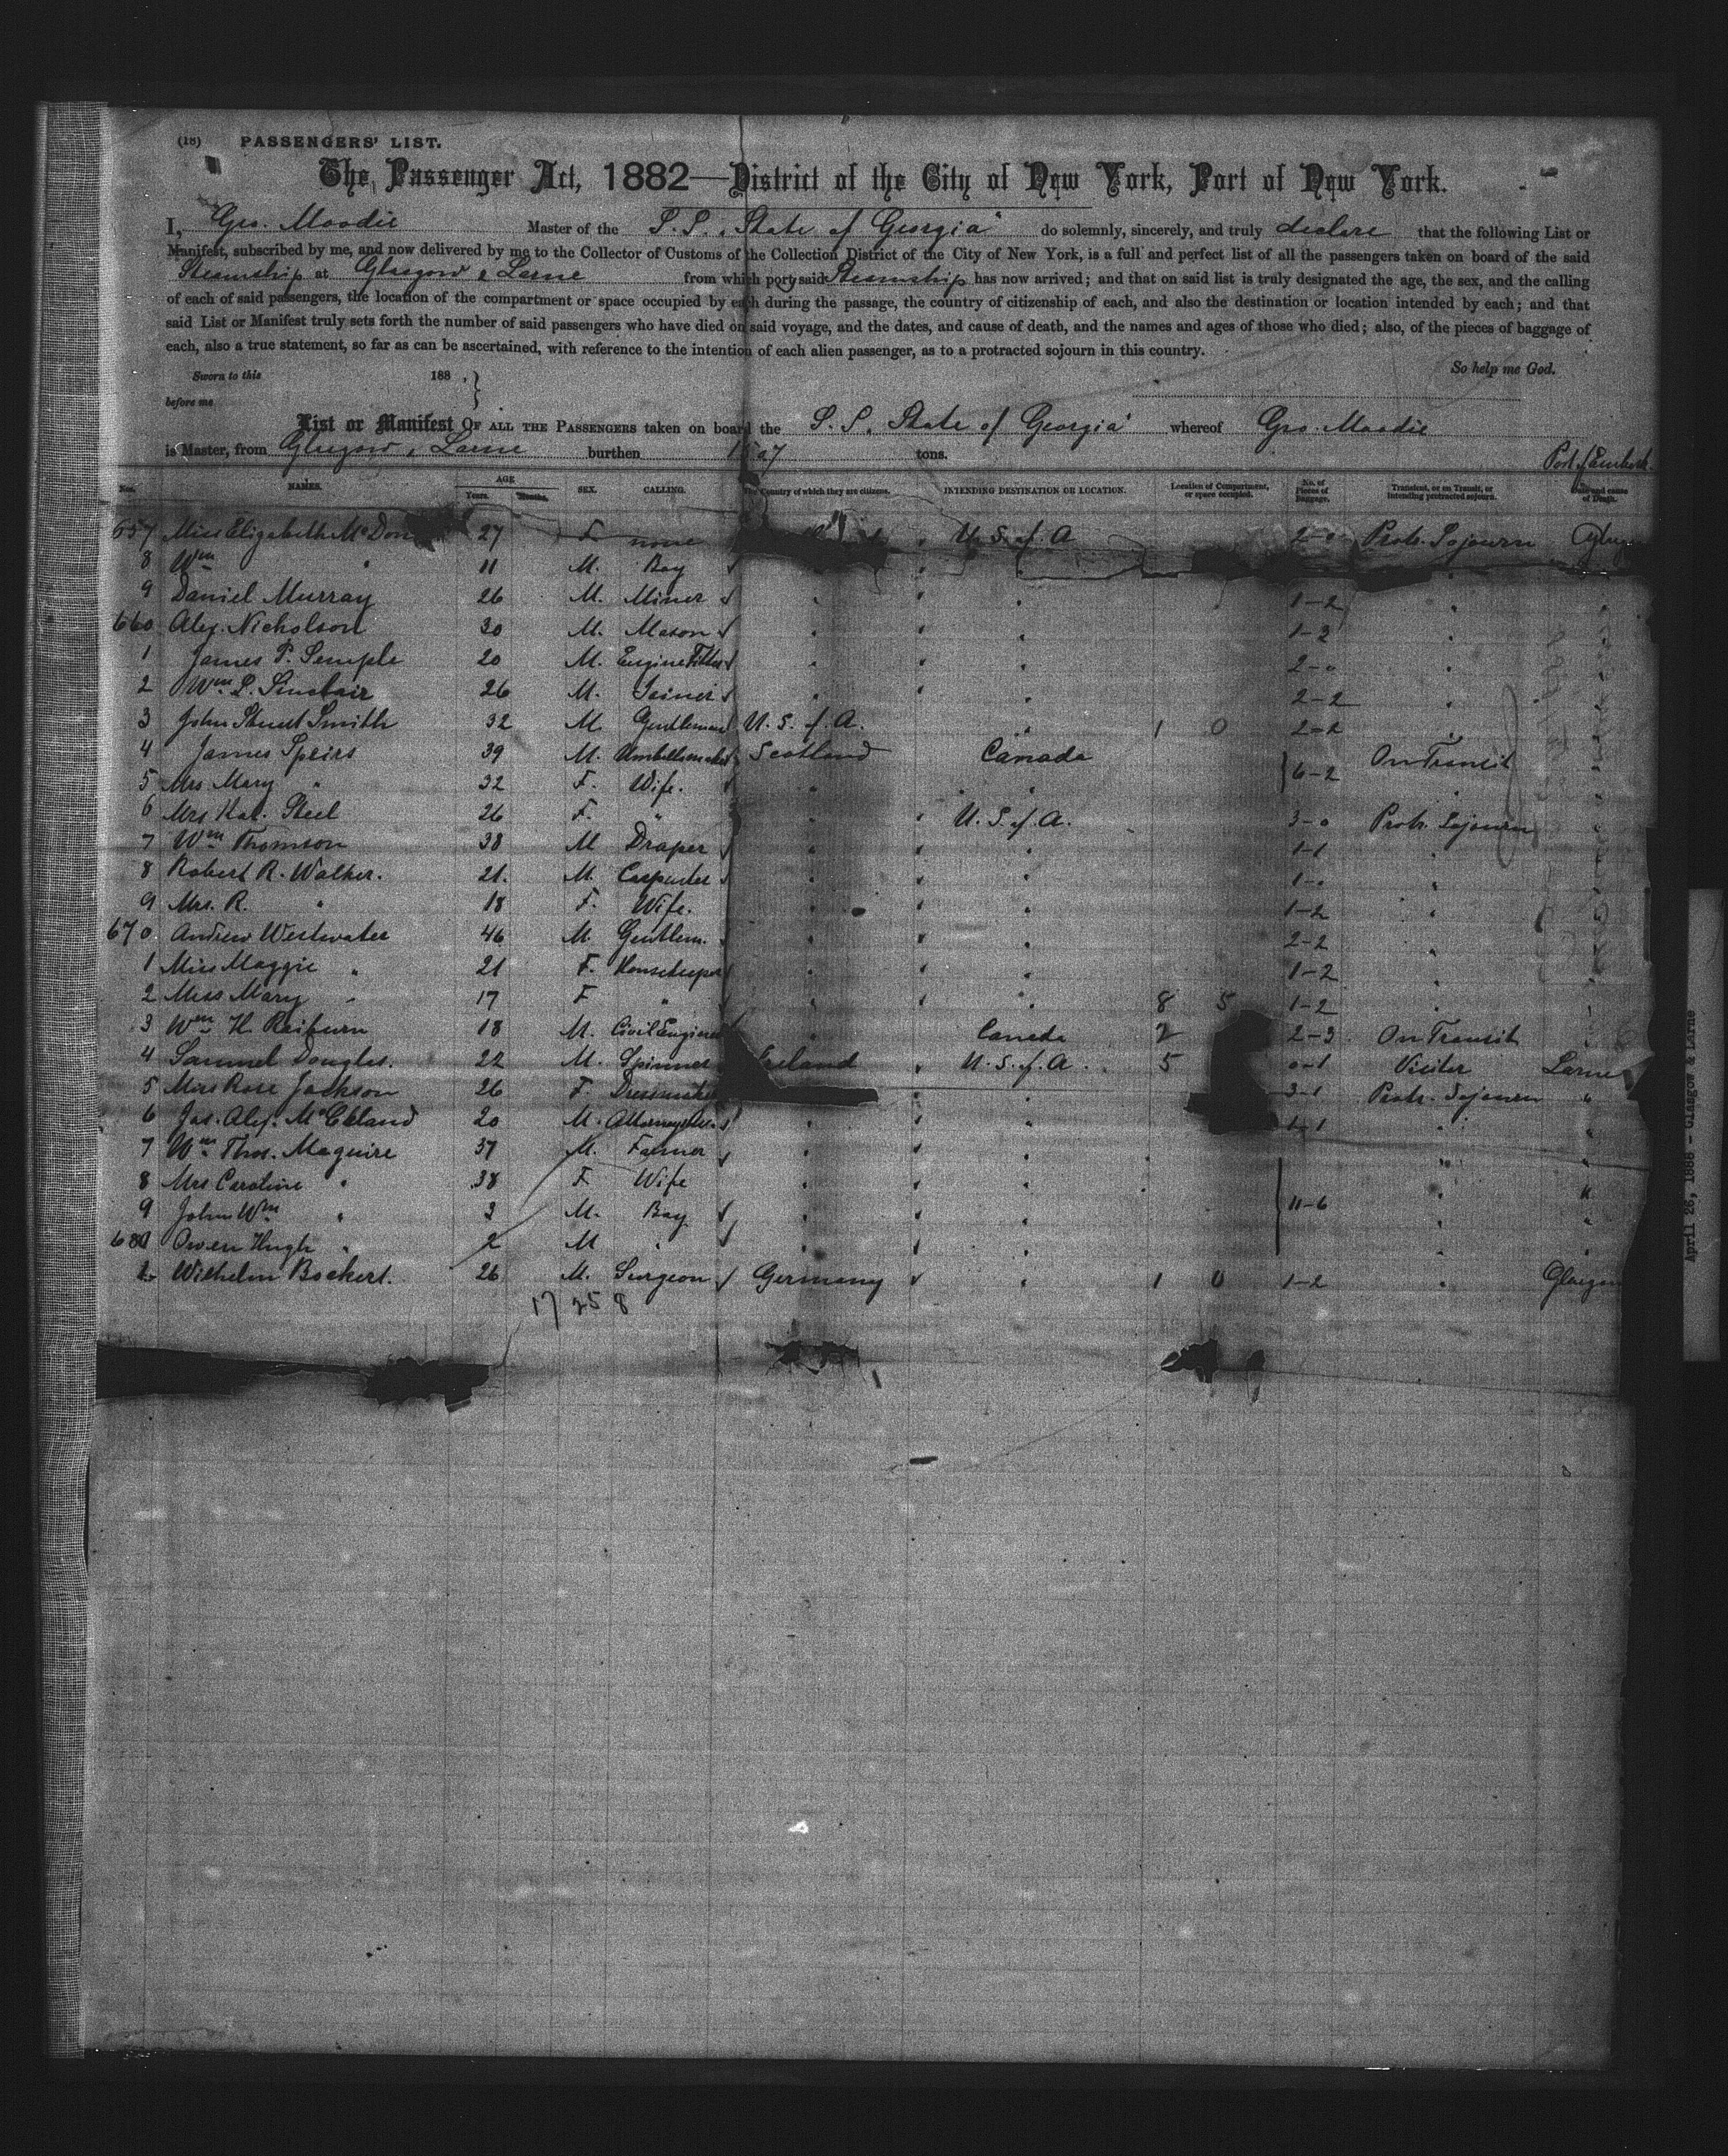 (18) PASSENGERS' LIST.
The Passenger Act, 1882—District of the City of New York, Port of New York.
I, Geo. Moodie Master of the S.S. "State of Georgia" do solemnly, sincerely, and truly declare that the following List or
Manifest, subscribed by me, and now delivered by me to the Collector of Customs of the Collection District of the City of New York, is a full and perfect list of all the passengers taken on board of the said
Steamship at Glasgow & Larne from which port said Steamship has now arrived; and that on said list is truly designated the age, the sex, and the calling
of each of said passengers, the location of the compartment or space occupied by each during the passage, the country of citizenship of each, and also the destination or location intended by each; and that
said List or Manifest truly sets forth the number of said passengers who have died on said voyage, and the dates, and cause of death, and the names and ages of those who died; also, of the pieces of baggage of
each, also a true statement, so far as can be ascertained, with reference to the intention of each alien passenger, as to a protracted sojourn in this country.
Sworn to this 188 , } So help me God.
before me
List or Manifest OF ALL THE PASSENGERS taken on board the S.S. State of Georgia" whereof Geo. Moodie
is Master, from Glasgow & Larne burthen tons. Port of Embark.
No. NAMES. AGE Years. Months. SEX. CALLING. The Country of which they are citizens. INTENDING DESTINATION OR LOCATION. Location of Compartment, or space occupied. No. of Pieces of Baggage. Transient, or on Transit, or intending protracted sojourn. Date and cause of Death.
657 Miss Elizabeth McDon 27 F none U.S. of A 2-0 Protr. Sojourn
8 Wm " 11 M. Boy "
9 Daniel Murray 26 M. Miner " " 1-2 " "
660 Alex. Nicholson 30 M. Mason " " 1-2 " "
1 James P. Semple 20 M. Engine Fitter " " 2-0 " "
2 Wm L. Sinclair 26 M. Joiner " " 2-2 " "
3 John Stuart Smith 32 M. Gentleman U.S. of A. " 1 0 2-2 "
4 James Speirs 39 M. Umbrellamaker Scotland Canada } 6-2 On Transit "
5 Mrs Mary " 32 F. Wife. " " " "
6 Mrs Kat. Steel 26 F. " " U.S. of A. 3-0 Protr. Sojourn "
7 Wm Thomson 38 M Draper " " 1-1 " "
8 Robert R. Walker. 21. M. Carpenter " " 1-0 " "
9 Mrs. R. " 18 F. Wife. " " 1-2 " "
670 Andrew Westwater 46 M. Gentlem. " " 2-2 " "
1 Miss Maggie " 21 F. Housekeeper " " 1-2 " "
2 Miss Mary " 17 F " " " 8 5 1-2 " "
3 Wm H. Raiburn 18 M. Civil Engineer " Canada 2 2-3 On Transit "
4 Samuel Douglas. 22 M. Spinner Ireland U.S. of A. 5 0-1 Visiter Larne
5 Mrs Rose Jackson 26 F. Dressmaker " 3-1 Protr. Sojourn "
6 Jas. Alex. McClelland 20 M. " " 1-1 " "
7 Wm Thos. Maguire 37 M. Farmer " " " "
8 Mrs Caroline " 38 F Wife " " } 11-6 " "
9 John Wm " 3 M. Boy " " " "
680 Owen Hugh " 2 M " " " " "
1 Wilhelm Bockert. 26 M. Surgeon Germany " 1 0 1-2 " Glasgow
17 25 8
April 26, 1888 - Glasgow & Larne